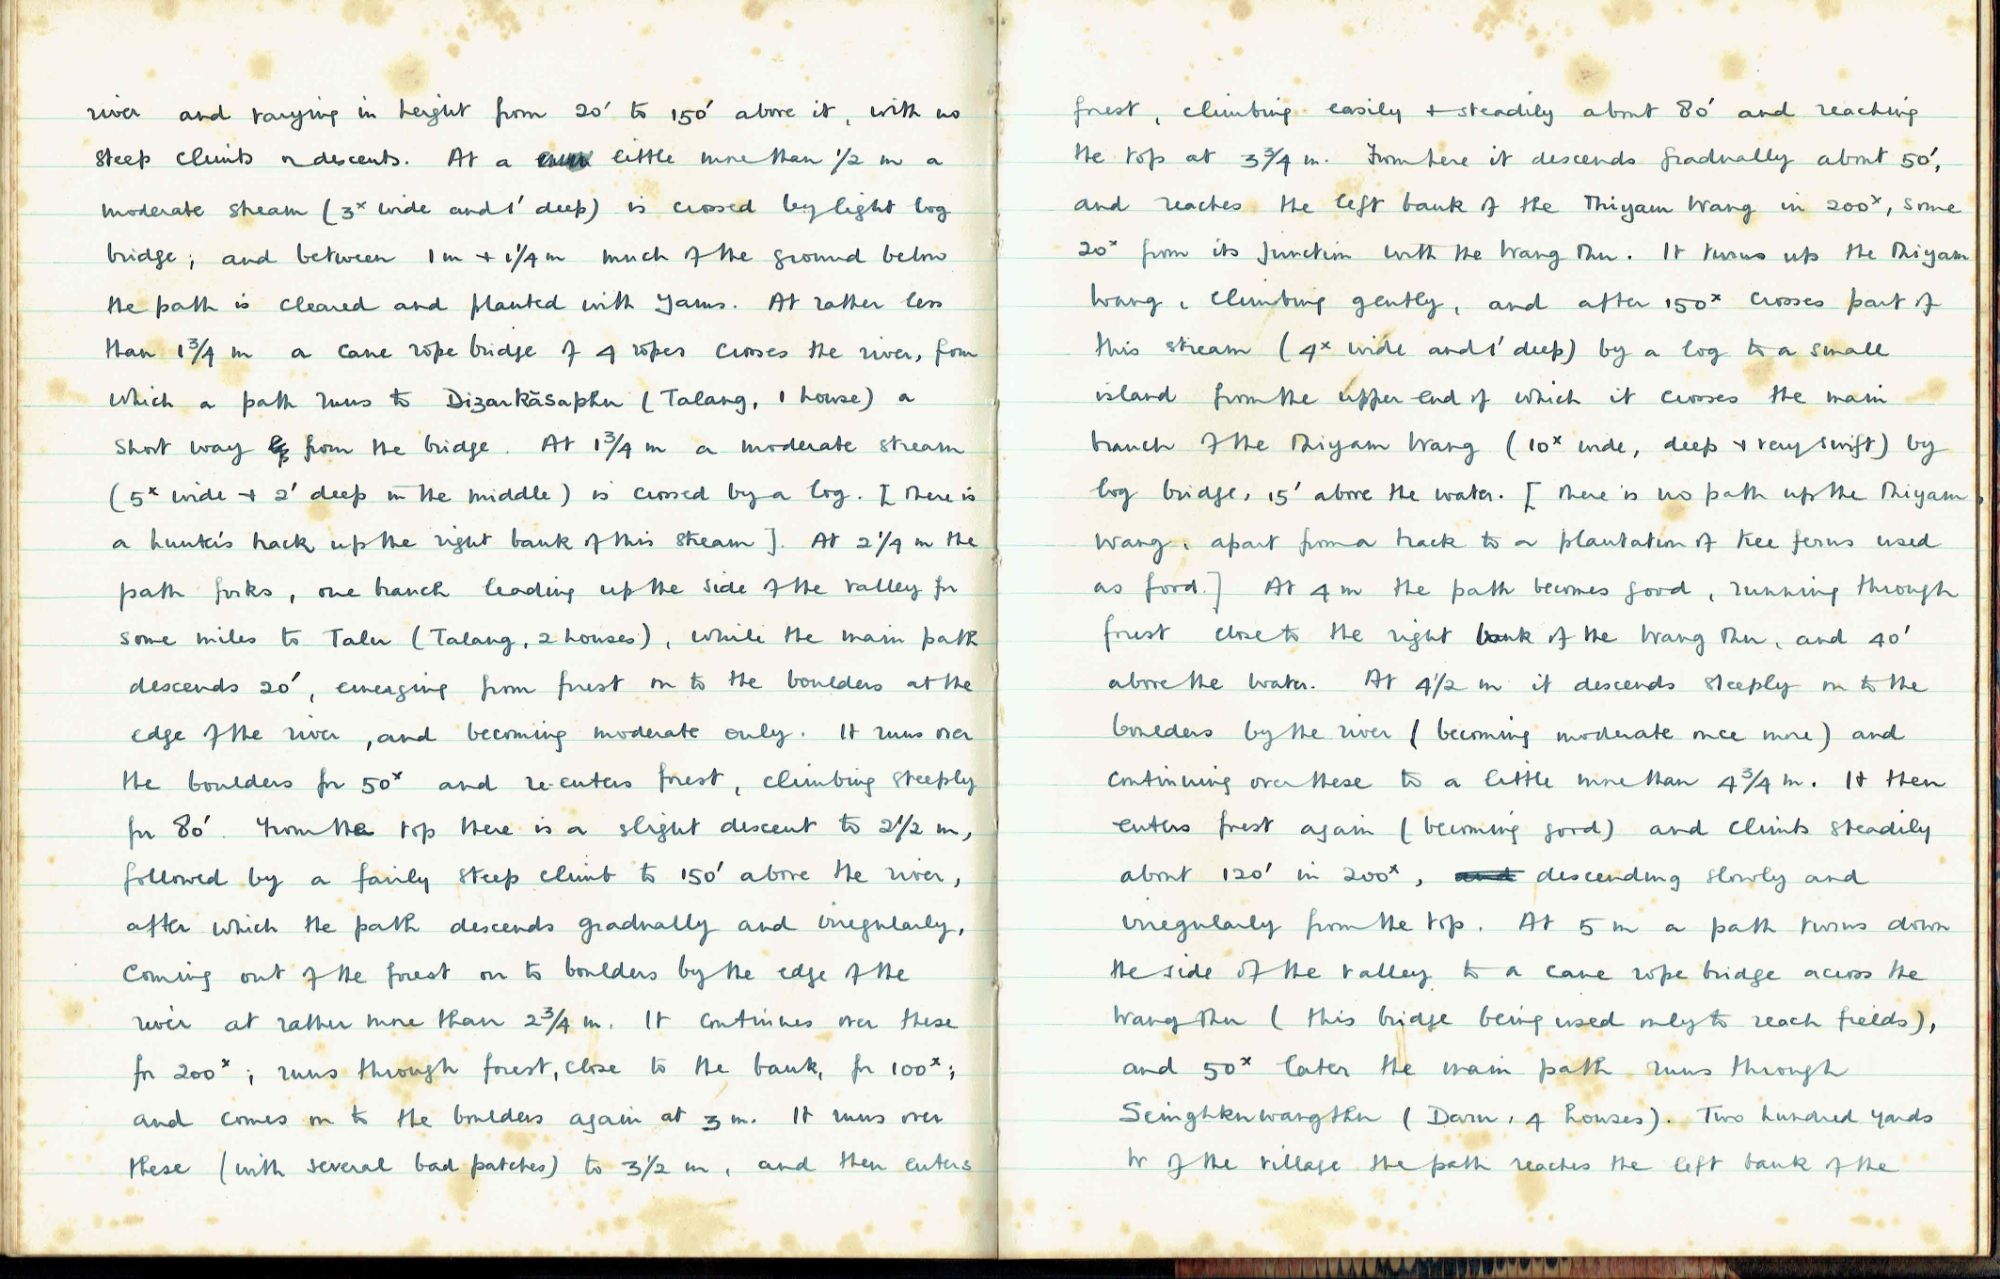 river and varying in height from 20' to 150' above it, with no
steep climbs or descents. At a little more than 1/2 m a
moderate stream (3ˣ wide and 1' deep) is crossed by light log
bridge; and between 1 m + 1 1/4 m much of the ground below
the path is cleared and planted with yams. At rather less
than 1 3/4 m a cane rope bridge of 4 ropes crosses the river, from
which a path runs to Dizarkāsaphu (Talang, 1 house) a
short way from the bridge. At 1 3/4 m a moderate stream
(5ˣ wide + 2' deep in the middle) is crossed by a log. [There is
a hunter's track up the right bank of this stream]. At 2 1/4 m the
path forks, one branch leading up the side of the valley for
some miles to Talu (Talang, 2 houses), while the main path
descends 20', emerging from forest on to the boulders at the
edge of the river, and becoming moderate only. It runs over
the boulders for 50ˣ and re-enters forest, climbing steeply
for 80'. From the top there is a slight descent to 2 1/2 m,
followed by a fairly steep climb to 150' above the river,
after which the path descends gradually and irregularly,
coming out of the forest on to boulders by the edge of the
river at rather more than 2 3/4 m. It continues over these
for 200ˣ; runs through forest, close to the bank, for 100ˣ;
and comes on to the boulders again at 3 m. It runs over
these (with several bad patches) to 3 1/2 m, and then enters
forest, climbing easily + steadily about 80' and reaching
the top at 3 3/4 m. From here it descends gradually about 50',
and reaches the left bank of the Thiyam Wang in 200ˣ, some
20ˣ from its junction with the Wang Thu. It turns up the Thiyam
Wang, climbing gently, and after 150ˣ crosses part of
this stream (4ˣ wide and 1' deep) by a log to a small
island from the upper end of which it crosses the main
branch of the Thiyam Wang (10ˣ wide, deep + very swift) by
log bridge, 15' above the water. [There is no path up the Thiyam
Wang, apart from a track to a plantation of tree ferns used
as food.] At 4 m the path becomes good, running through
forest close to the right bank of the Wang Thu, and 40'
above the water. At 4 1/2 m it descends steeply on to the
boulders by the river (becoming moderate once more) and
continuing over these to a little more than 4 3/4 m. It then
enters forest again (becoming good) and climbs steadily
about 120' in 200ˣ, and descending slowly and
irregularly from the top. At 5 m a path turns down
the side of the valley to a cane rope bridge across the
Wang Thu (this bridge being used only to reach fields),
and 50ˣ later the main path runs through
Seinghkuwangthu (Daru, 4 houses). Two hundred yards
W of the village the path reaches the left bank of the